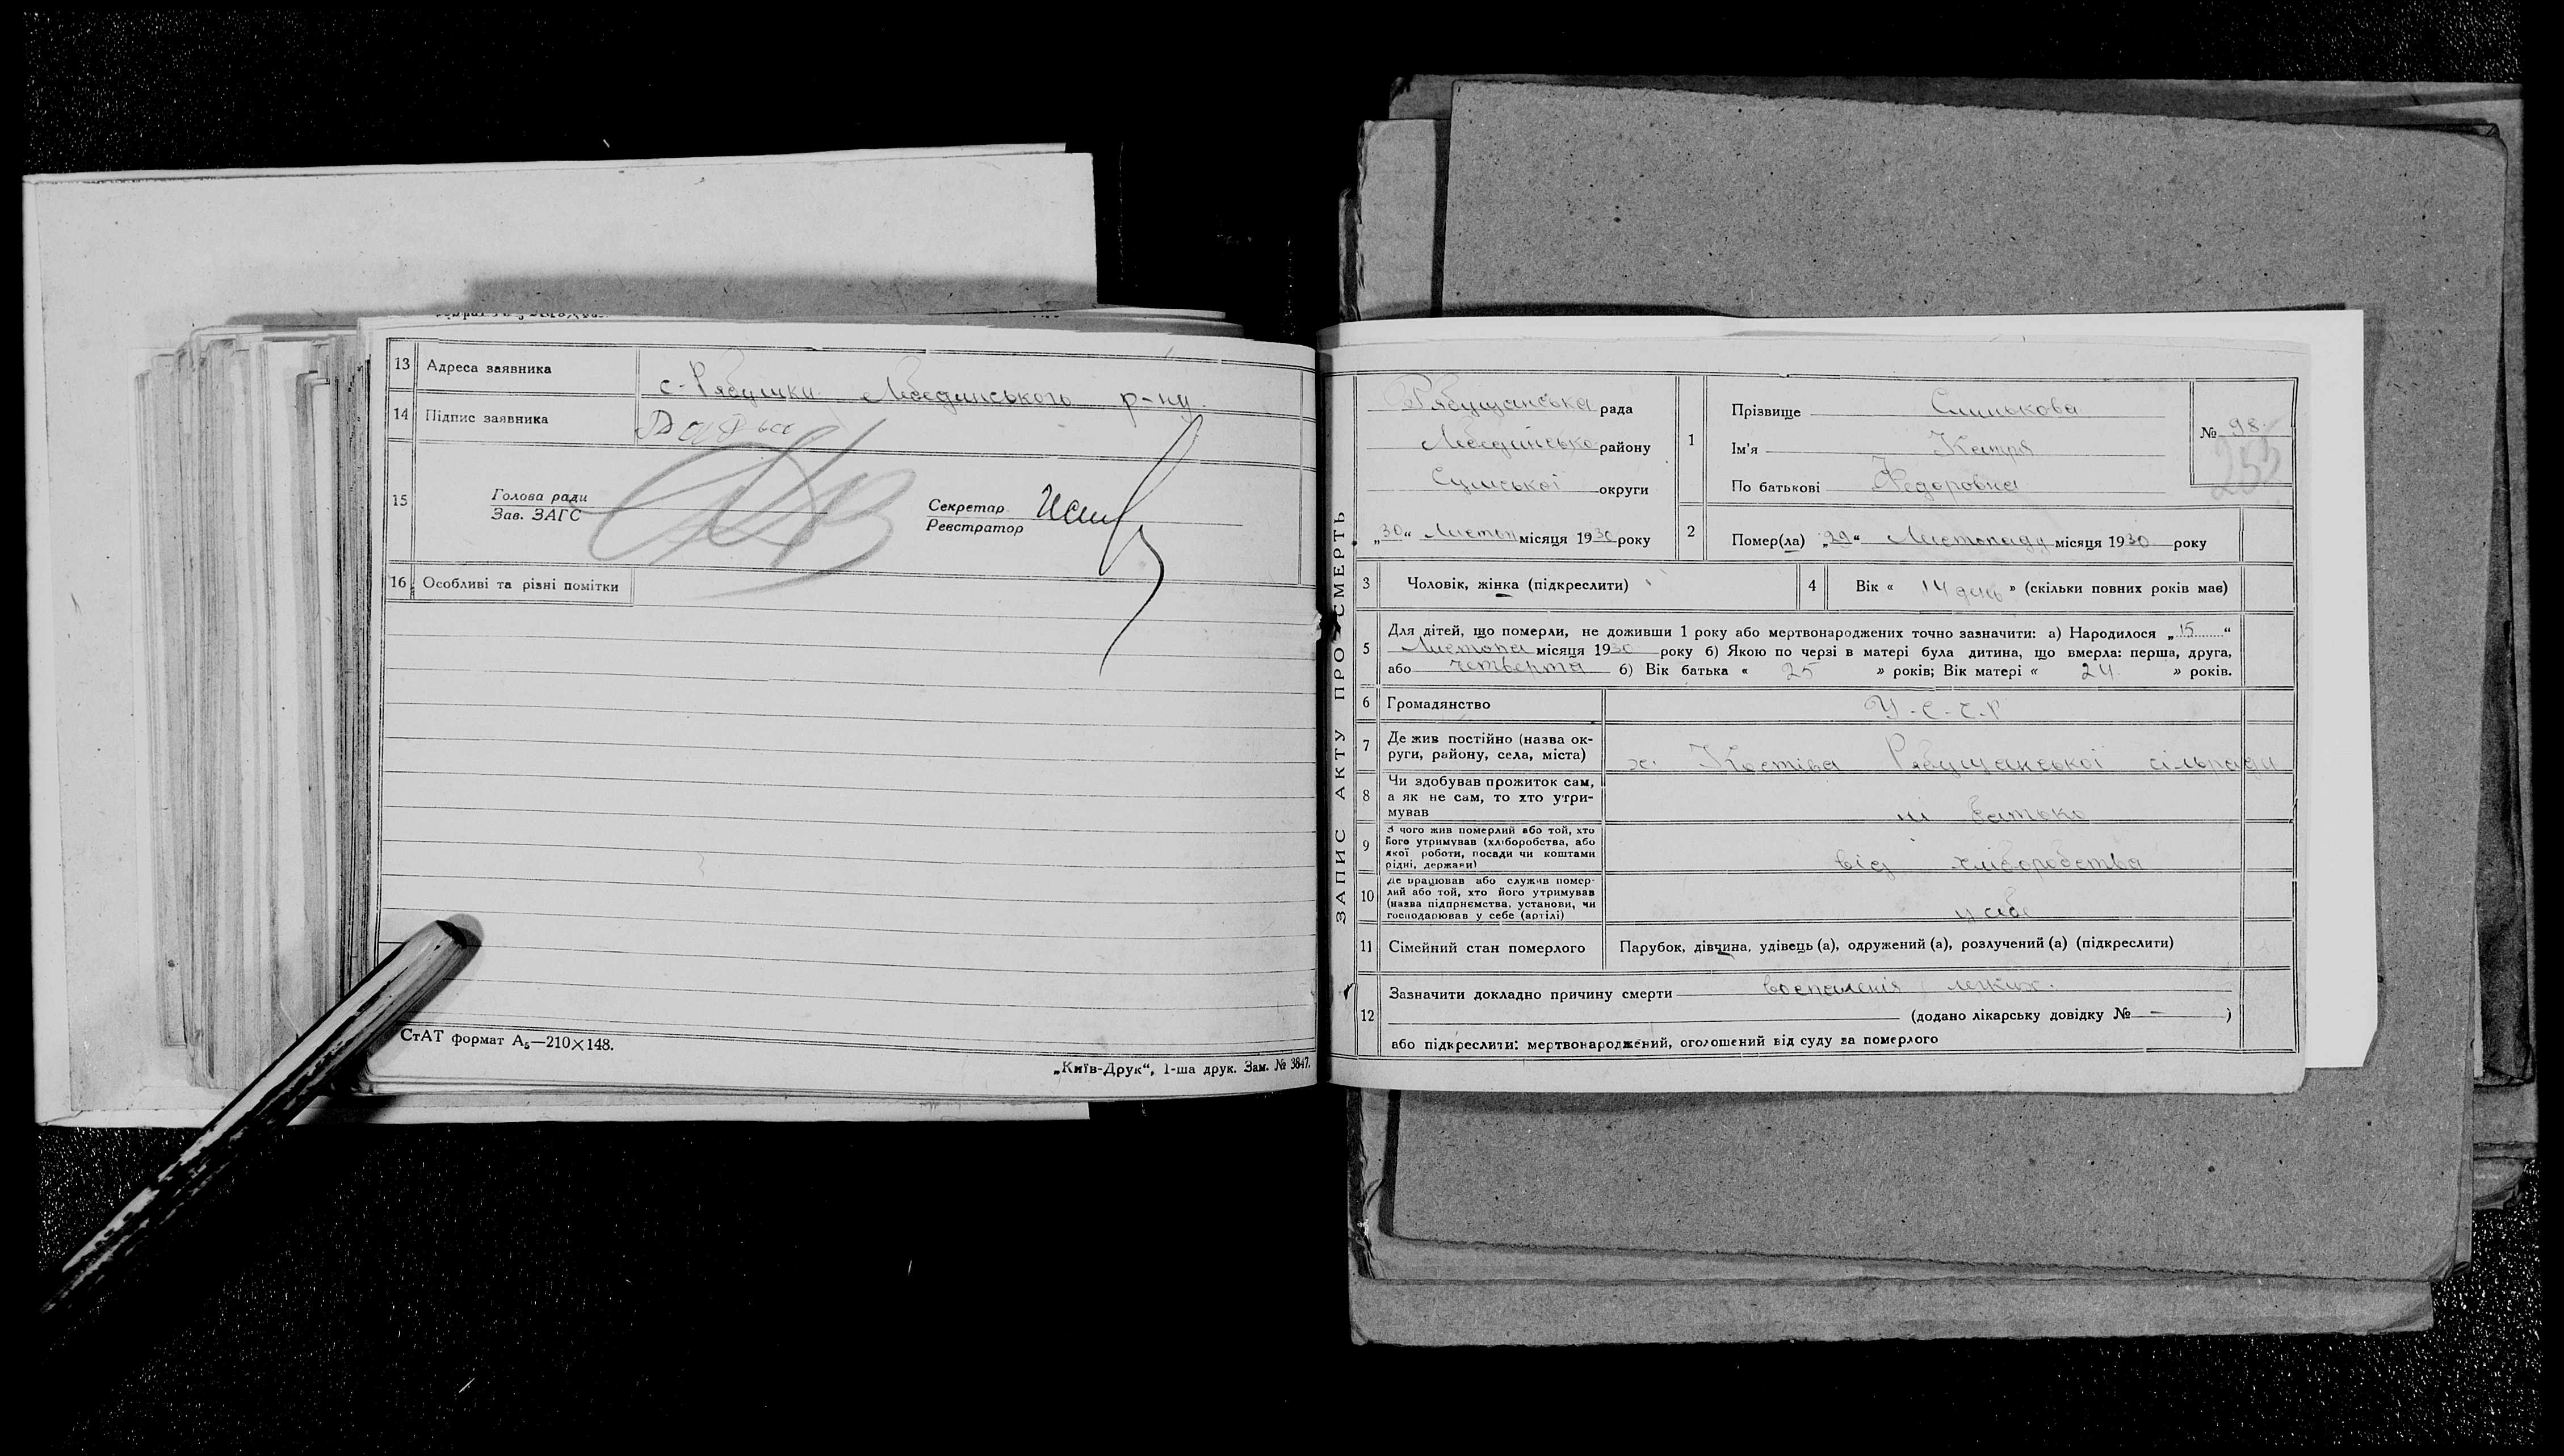 13 Адреса заявника
с-Рябушки Лебединського р-ну.
14 Підпис заявника
15 Голова ради
Зав. ЗАГС
Секретар
Реєстратор
16 Особливі та різні помітки
СтАТ формат А₅—210×148.
„Київ-Друк“, 1-ша друк. Зам. № 3847.
ЗАПИС АКТУ ПРО СМЕРТЬ
Рябушанська рада
Лебединсько району
Сумської округи
„30“ Листоп місяця 1930 року
1 Прізвище Слинькова
Ім'я Катря
По батькові Федоровна
№ 98
253
2 Помер(ла) „29“ Листопаду місяця 1930 року
3 Чоловік, жінка (підкреслити)
4 Вік « 14 день » (скільки повних років має)
5 Для дітей, що померли, не доживши 1 року або мертвонароджених точно зазначити: а) Народилося „15“
Листопа місяця 1930 року б) Якою по черзі в матері була дитина, що вмерла: перша, друга,
або четверта б) Вік батька « 25 » років; Вік матері « 24 » років.
6 Громадянство У-С-С-Р
7 Де жив постійно (назва ок-
руги, району, села, міста)
х. Костіва Рябушанської сільради
8 Чи здобував прожиток сам,
а як не сам, то хто утри-
мував
ні батько
9 З чого жив померлий або той, хто
його утримував (хліборобства, або
якої роботи, посади чи коштами
рідні, держави)
від хліборобства
10 Де працював або служив помер-
лий або той, хто його утримував
(назва підприємства, установи, чи
господарював у себе (артілі)
у себе
11 Сімейний стан померлого Парубок, дівчина, удівець (а), одружений (а), розлучений (а) (підкреслити)
12 Зазначити докладно причину смерти воспаленія легких.
(додано лікарську довідку № — )
або підкреслити: мертвонароджений, оголошений від суду за померлого